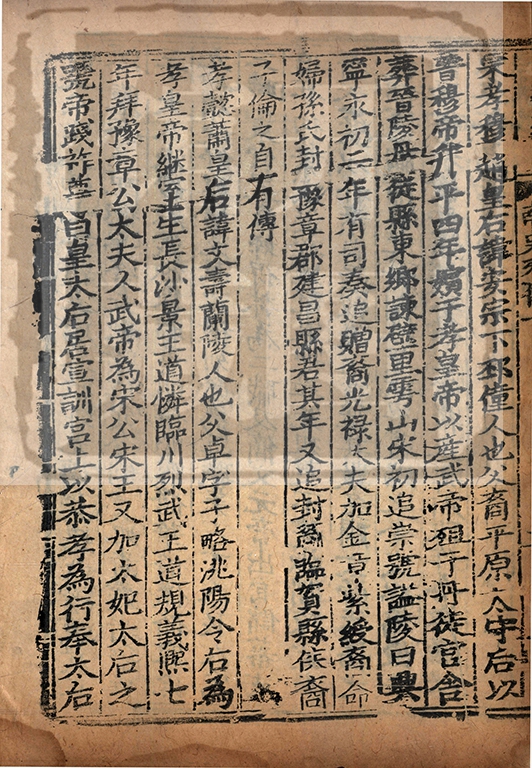 宋孝穆趙皇后諱安宗下邳僮人也父裔平原太守后以
晉穆帝升平四年嬪于孝皇帝以產武帝殂于丹徒官舍
葬晉陵丹徒縣東鄉諫壁里雩山宋初追崇號諡陵曰興
寧永初二年有司奏追贈裔光禄大夫加金章紫綬裔命
婦孫氏封豫章郡建昌縣君其年又追封裔臨賀縣侯裔
子倫之自有傳
孝懿蕭皇后諱文壽蘭陵人也父卓字子略洮陽令后為
孝皇帝継室生長沙景王道憐臨川烈武王道規義熙七
年拜豫章公太夫人武帝為宋公宋王又加太妃太后之
號帝踐祚尊曰皇太后居宣訓宮上以恭孝為行奉太后